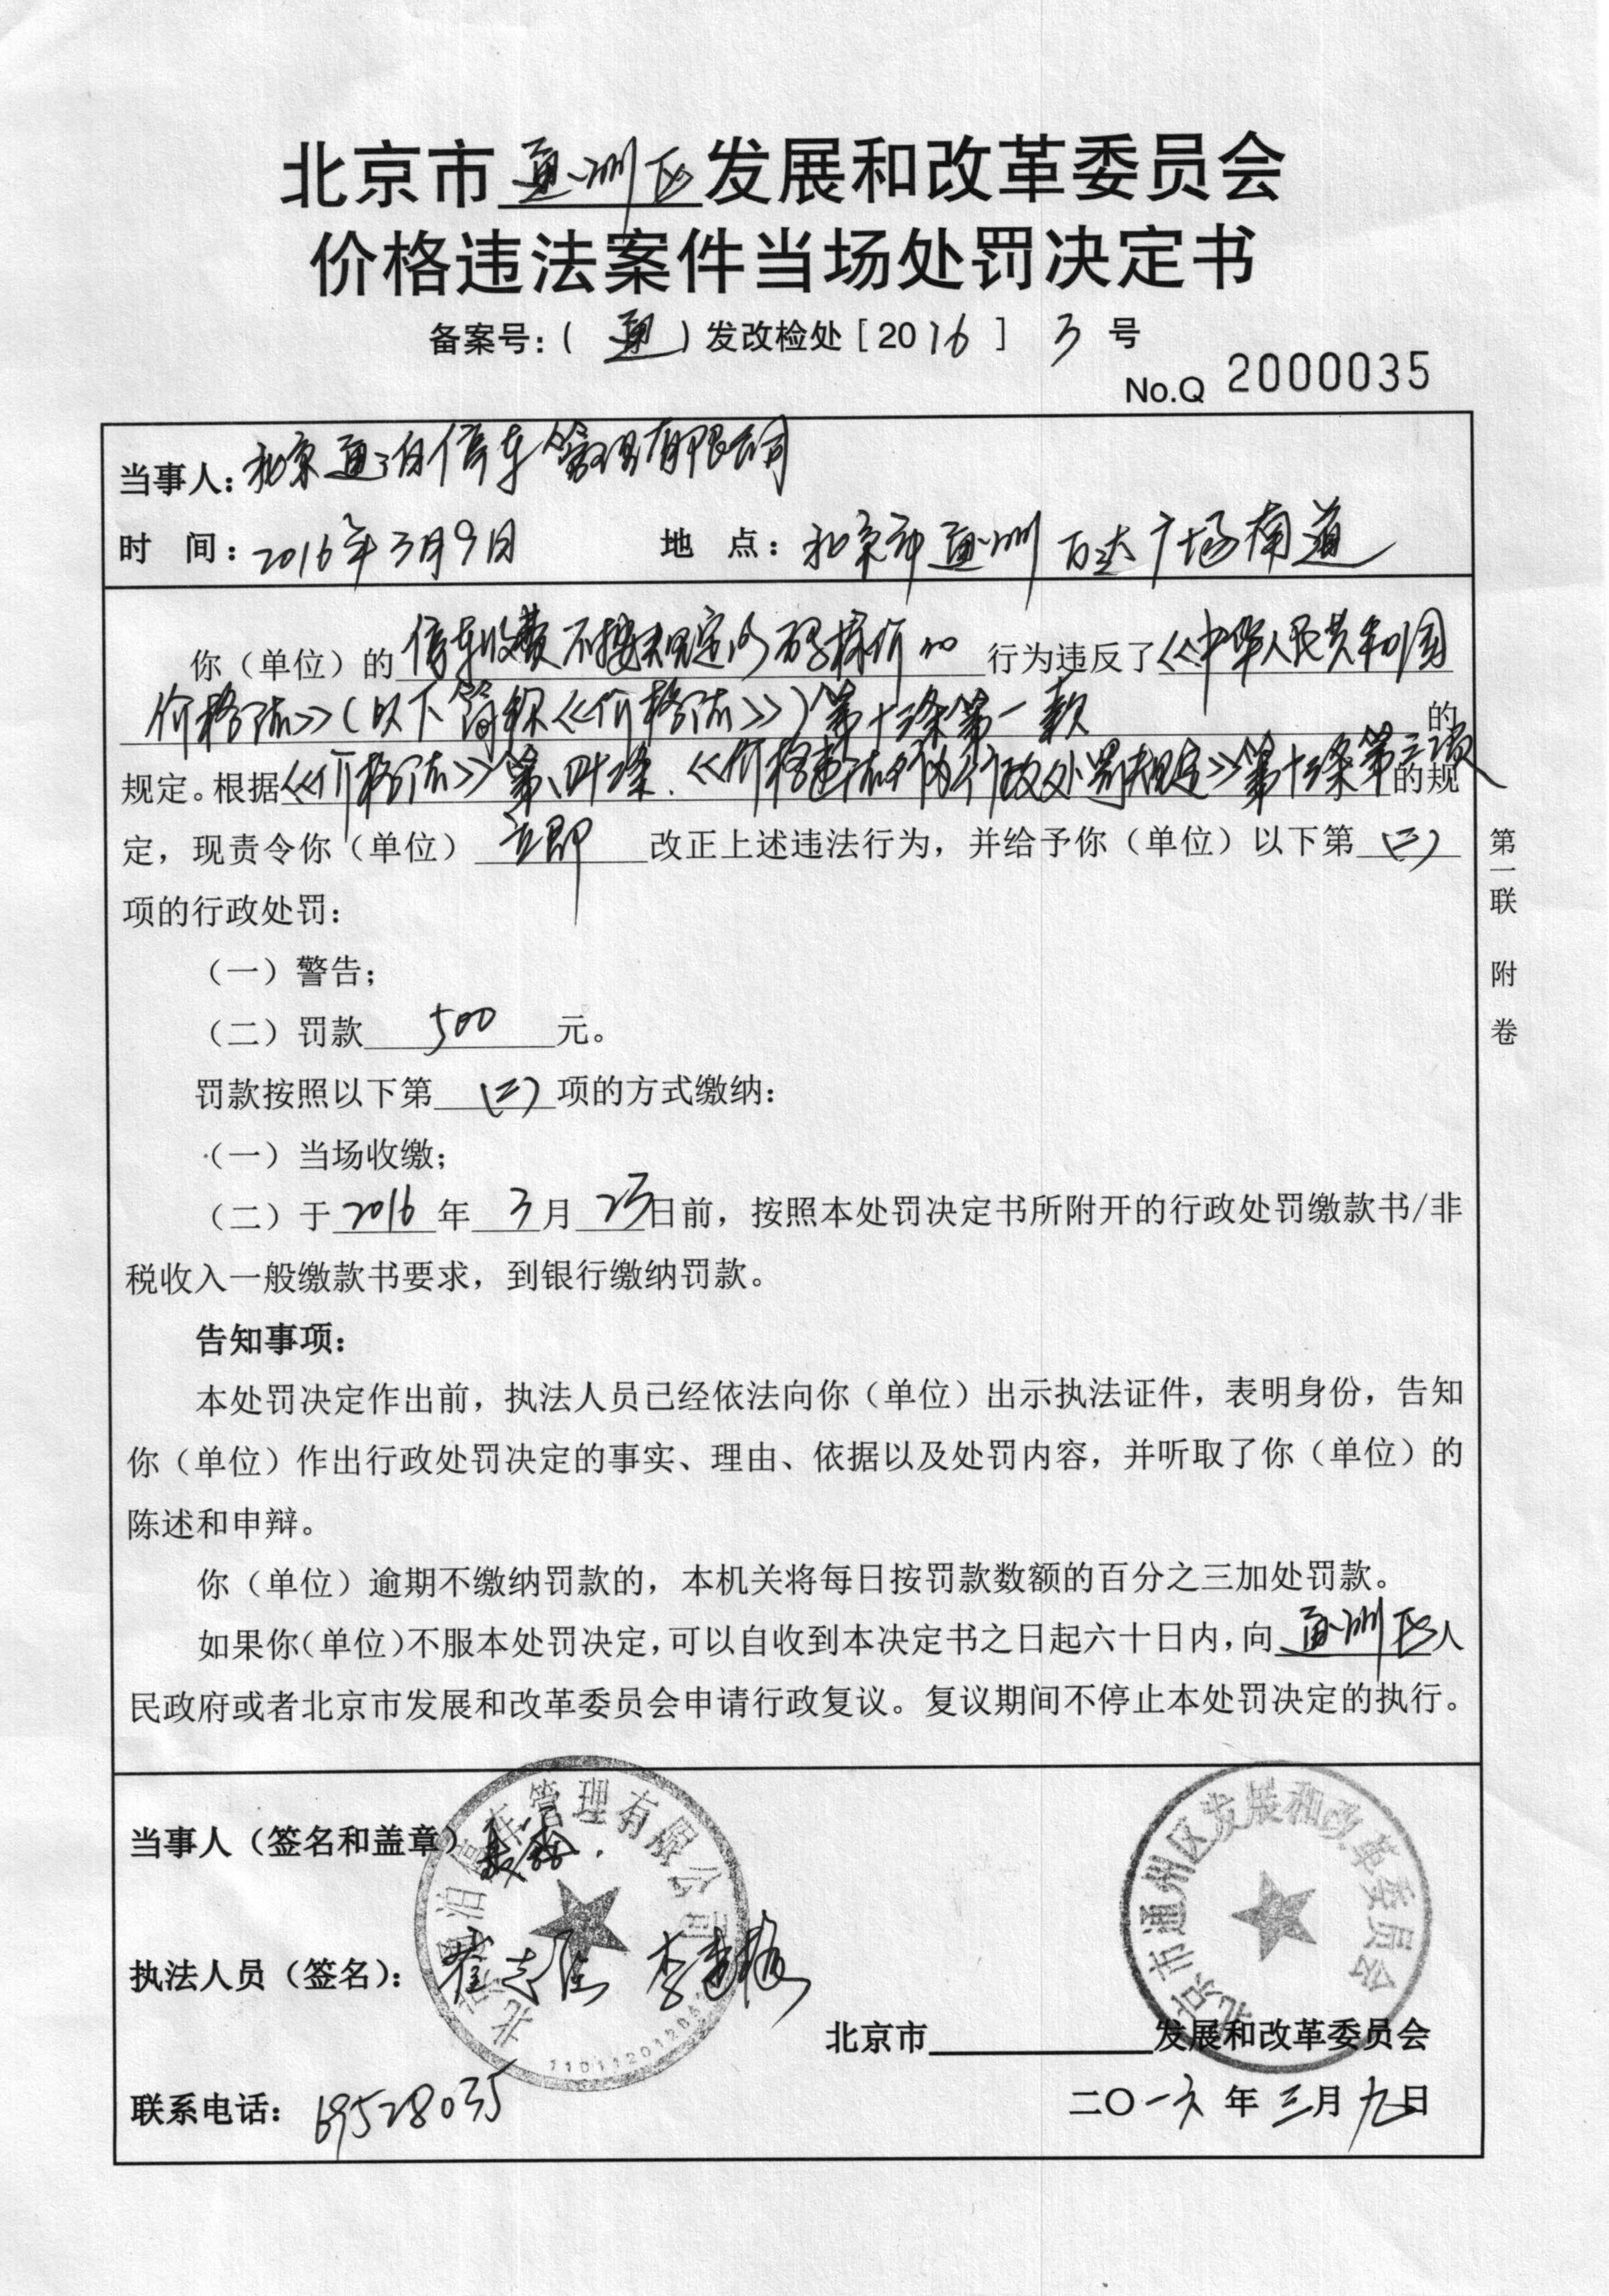 北京市通州区发展和改革委员会
价格违法案件当场处罚决定书
备案号：（ 通 ）发改检处［2016］ 3 号
No.Q 2000035
当事人：北京通泊停车管理有限公司
时 间：2016年3月9日 地 点：北京市通州万达广场南道
你（单位）的停车收费不按规定明码标价的行为违反了《中华人民共和国
价格法》（以下简称《价格法》）第十三条第一款的
规定。根据《价格法》第四十二条、《价格违法行为行政处罚规定》第十三条第三项的规
定，现责令你（单位）立即改正上述违法行为，并给予你（单位）以下第（二）
项的行政处罚：
（一）警告；
（二）罚款500元。
罚款按照以下第（二）项的方式缴纳：
（一）当场收缴；
（二）于2016年3月23日前，按照本处罚决定书所附开的行政处罚缴款书/非
税收入一般缴款书要求，到银行缴纳罚款。
告知事项：
本处罚决定作出前，执法人员已经依法向你（单位）出示执法证件，表明身份，告知
你（单位）作出行政处罚决定的事实、理由、依据以及处罚内容，并听取了你（单位）的
陈述和申辩。
你（单位）逾期不缴纳罚款的，本机关将每日按罚款数额的百分之三加处罚款。
如果你（单位）不服本处罚决定，可以自收到本决定书之日起六十日内，向通州区人
民政府或者北京市发展和改革委员会申请行政复议。复议期间不停止本处罚决定的执行。
第一联 附卷
当事人（签名和盖章）
北京通泊停车管理有限公司
北京市通州区发展和改革委员会
执法人员（签名）：
北京市 发展和改革委员会
联系电话：69528035
二〇一六年三月九日